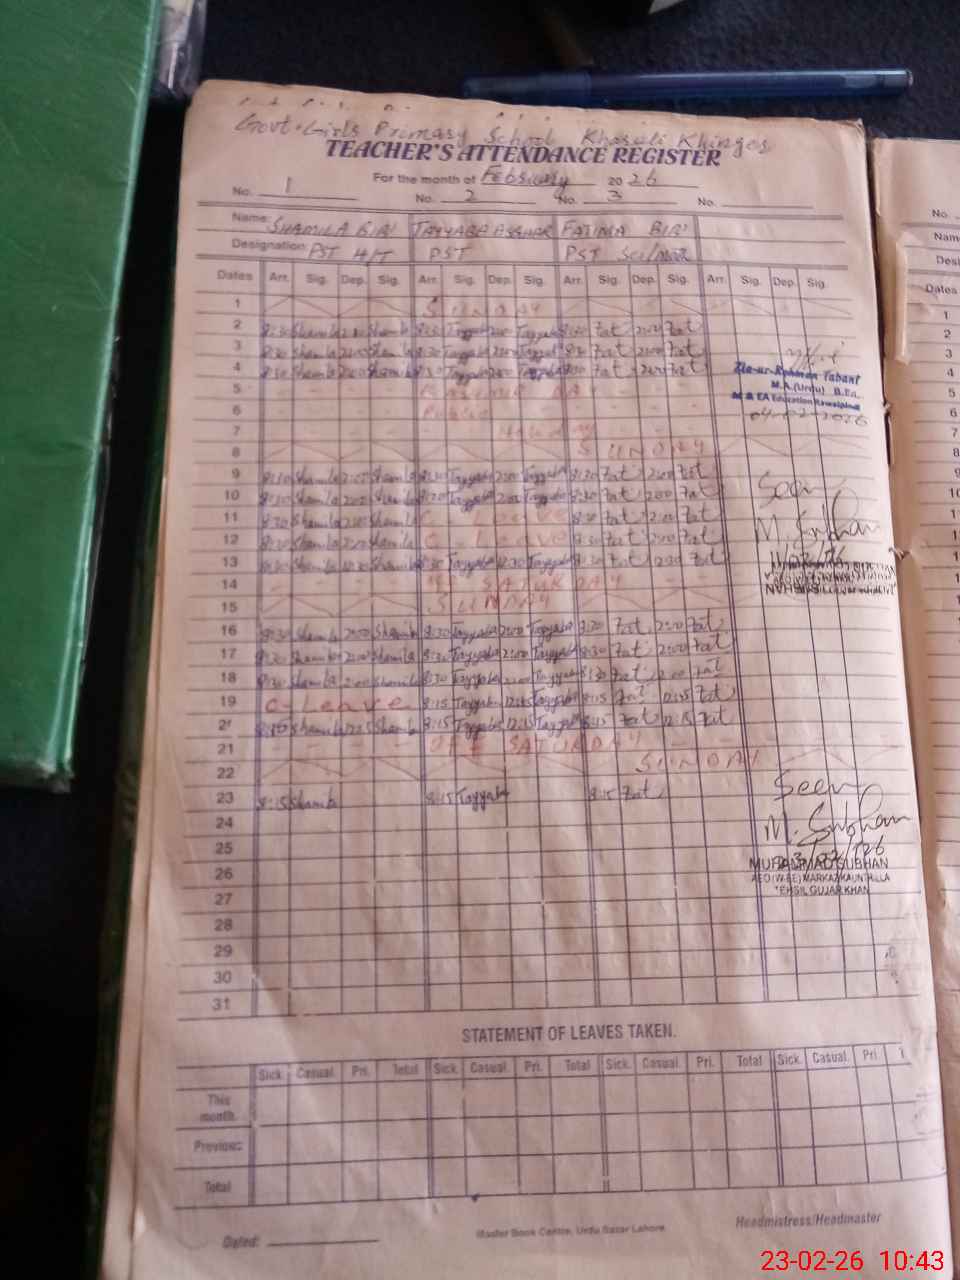 Govt. Girls Primary School Khasali Khinger
TEACHER'S ATTENDANCE REGISTER
For the month of February 2026
No. 1 No. 2 No. 3 No.
Name: SHAMILA BIBI TAYYABA ASGHAR FATIMA BIBI
Designation: PST H/T PST PST Sci/Math
Dates Arr. Sig. Dep. Sig. Arr. Sig. Dep. Sig. Arr. Sig. Dep. Sig. Arr. Sig. Dep. Sig.
1 SUNDAY
2 8:30 Shamila 2:00 Shamila 8:30 Tayyaba 2:00 Tayyaba 8:30 Fat 2:00 Fat
3 8:30 Shamila 2:00 Shamila 8:30 Tayyaba 2:00 Tayyaba 8:30 Fat 2:00 Fat
4 8:30 Shamila 2:00 Shamila 8:30 Tayyaba 2:00 Tayyaba 8:30 Fat 2:00 Fat
Zia-ur-Rehman Tabani
M.A.(Urdu) B.Ed.
M & EA Education Rawalpindi
04-02-2026
5 Kashmir DAY
6 Public
7 Holiday
8 SUNDAY
9 8:30 Shamila 2:00 Shamila 8:30 Tayyaba 2:00 Tayyaba 8:30 Fat 2:00 Fat
10 8:30 Shamila 2:00 Shamila 8:30 Tayyaba 2:00 Tayyaba 8:30 Fat 2:00 Fat
Seen
11 8:30 Shamila 2:00 Shamila C - Leave 8:30 Fat 2:00 Fat
12 8:30 Shamila 2:00 Shamila C - Leave 8:30 Fat 2:00 Fat
M. Subhan
13 8:30 Shamila 12:30 Shamila 8:30 Tayyaba 12:30 Tayyaba 8:30 Fat 12:30 Fat
11/02/26
14 OFF SATURDAY
15 SUNDAY
16 8:30 Shamila 2:00 Shamila 8:30 Tayyaba 2:00 Tayyaba 8:30 Fat 2:00 Fat
17 8:30 Shamila 2:00 Shamila 8:30 Tayyaba 2:00 Tayyaba 8:30 Fat 2:00 Fat
18 8:30 Shamila 2:00 Shamila 8:30 Tayyaba 2:00 Tayyaba 8:30 Fat 2:00 Fat
19 C - Leave 8:15 Tayyaba 12:45 Tayyaba 8:15 Fat 12:45 Fat
2 8:15 Shamila 12:15 Shamila 8:15 Tayyaba 12:15 Tayyaba 8:15 Fat 12:15 Fat
21 OFF SATURDAY
22 SUNDAY
23 8:15 Shamila 8:15 Tayyaba 8:15 Fat
Seen
24
M. Subhan
25
23/02/26
MUHAMMAD SUBHAN
26
AEO (W-EE) MARKAZ KAUNTRILLA
TEHSIL GUJAR KHAN
27
28
29
30
31
STATEMENT OF LEAVES TAKEN.
Sick. Casual. Pri. Total Sick. Casual. Pri. Total Sick. Casual. Pri. Total Sick. Casual. Pri. T
This month.
Previous
Total
Dated:
Master Book Centre, Urdu Bazar Lahore.
Headmistress/Headmaster
No.
Name
Desi
Dates
1
2
3
4
5
6
7
8
9
10
11
12
23-02-26 10:43